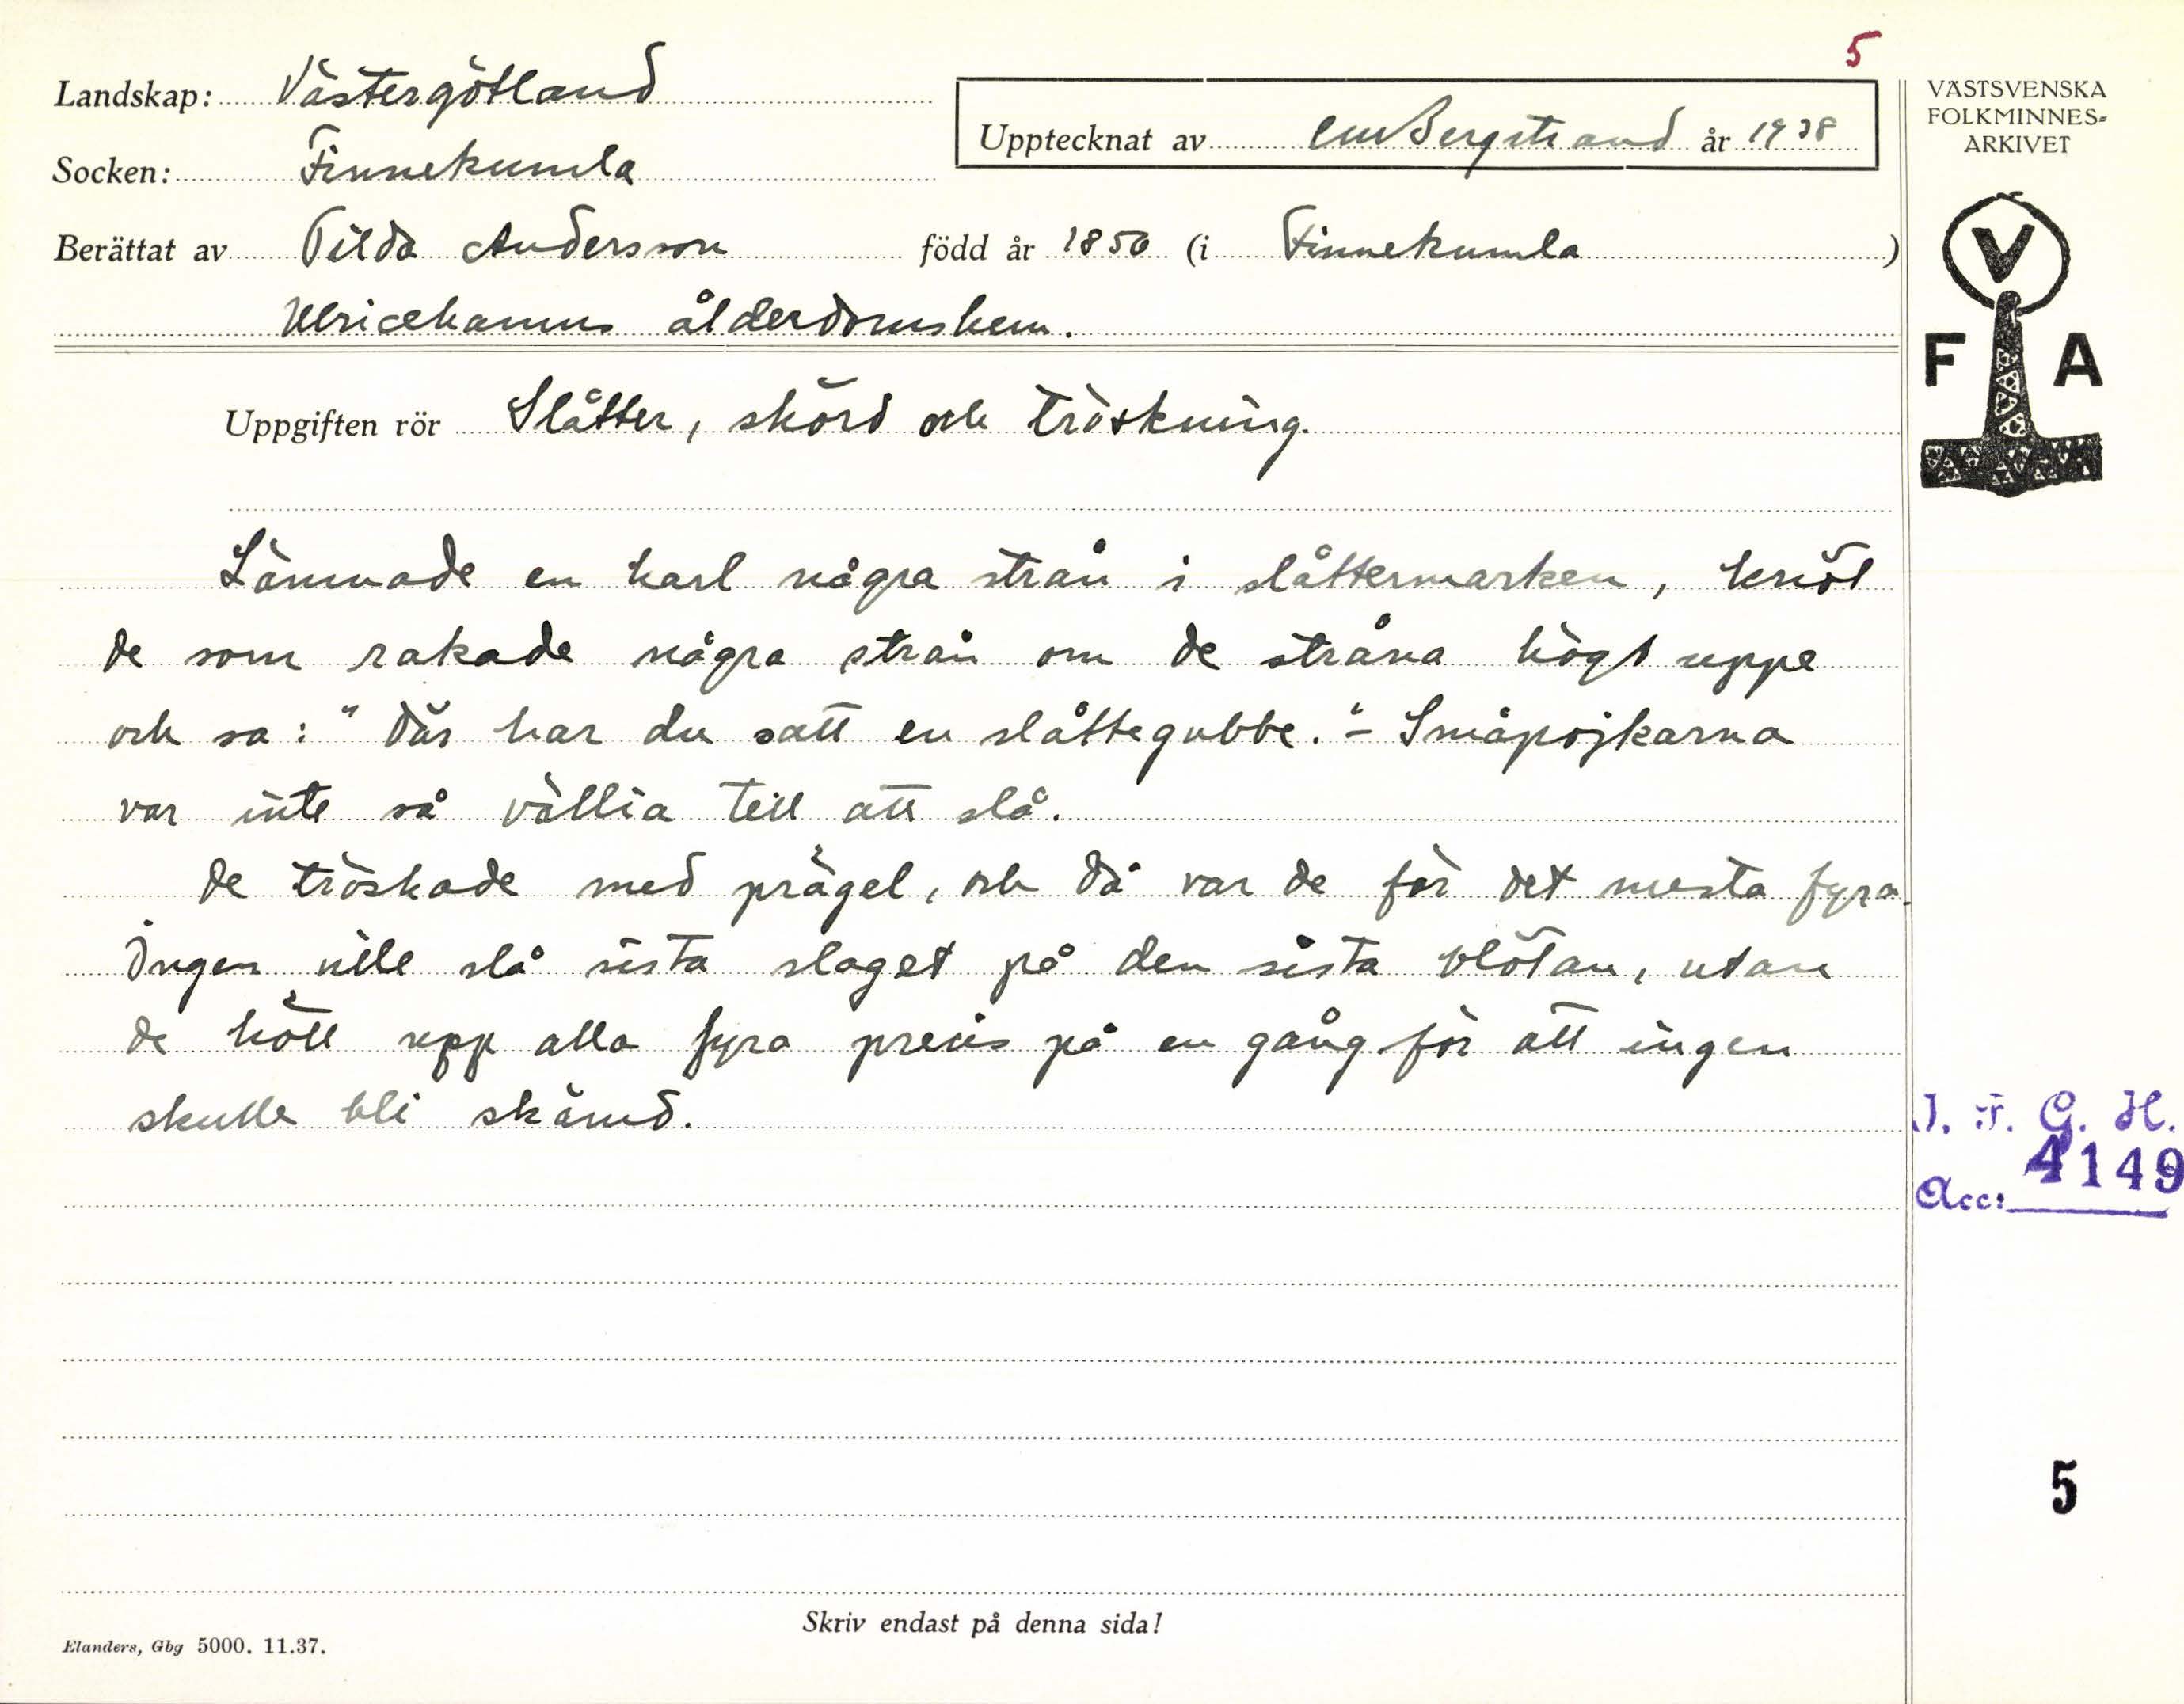 5
Landskap: Västergötland
Upptecknat av CM Bergstrand år 1938
VÄSTSVENSKA
FOLKMINNES-
ARKIVET
Socken: Finnekumla
Berättat av Tilda Andersson född år 1850 (i Finnekumla)
Ulricehamns ålderdomshem.
V
F A
Uppgiften rör Slåtter, skörd och tröskning.
Lämnade en karl några strån i slåttermarken, knöt
de som rakade några strån om de stråna högt uppe
och sa: "Där har du satt en slåttegubbe." - Småpojkarna
var inte så vällia till att slå.
De tröskade med prägel, och då var de för det mesta fyra.
Ingen ville slå sista slaget på den sista flötan, utan
de höll upp alla fyra precis på en gång för att ingen
skulle bli skämd.
I. F. G. H.
Acc: 4149
5
Skriv endast på denna sida!
Elanders, Gbg 5000. 11.37.